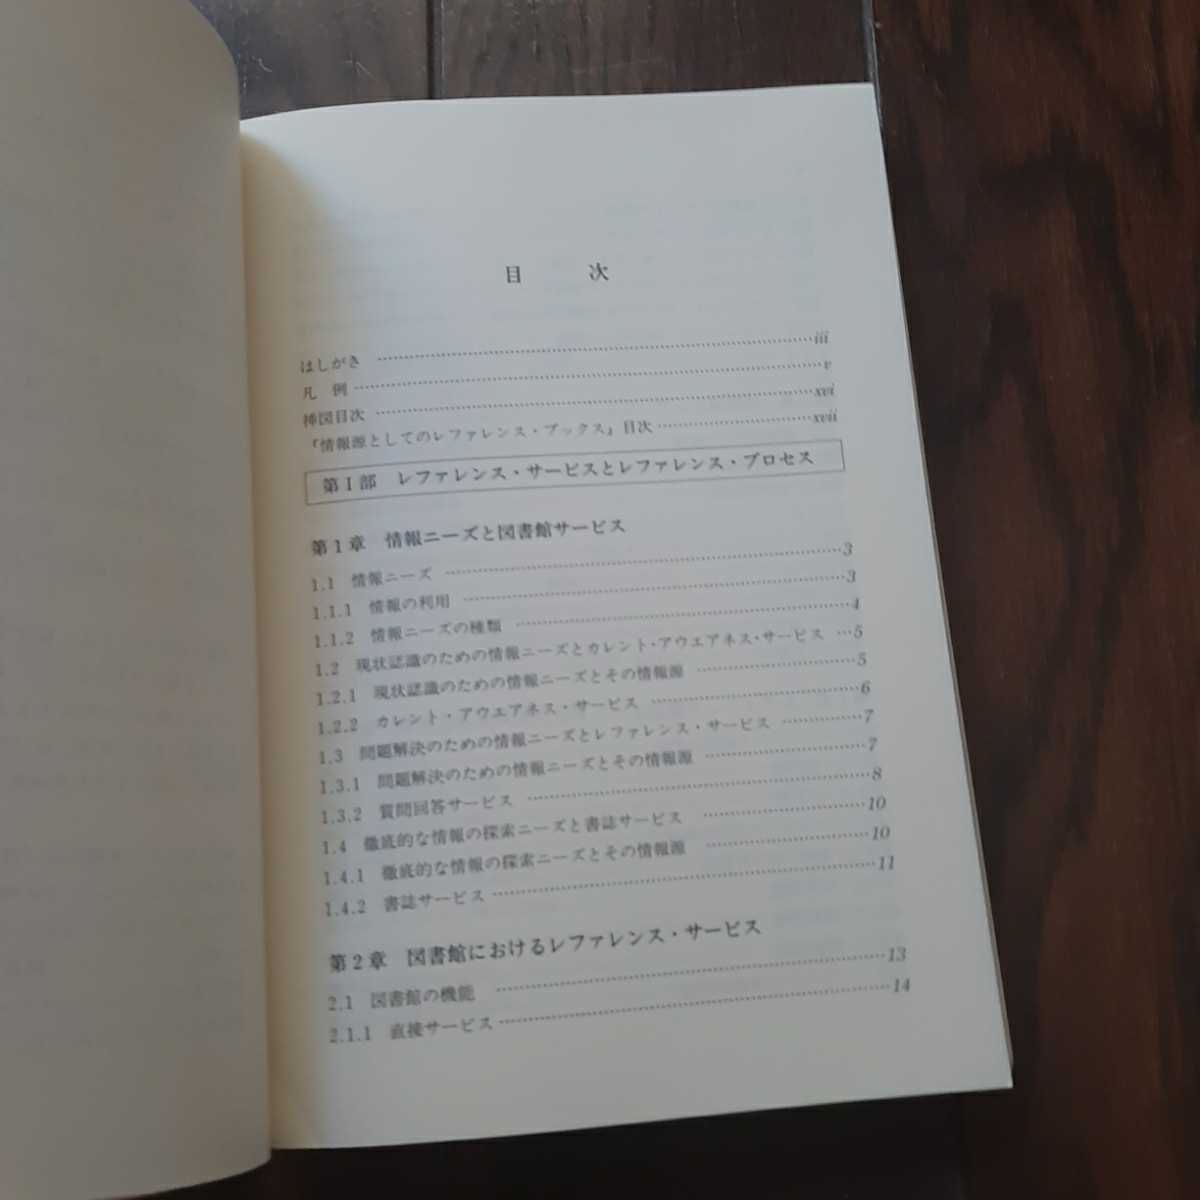 目　次
はしがき ……… iii
凡　例 ……… v
挿図目次 ……… xvi
『情報源としてのレファレンス・ブックス』目次 ……… xvii
第Ⅰ部　レファレンス・サービスとレファレンス・プロセス
第1章　情報ニーズと図書館サービス
1.1　情報ニーズ ……… 3
1.1.1　情報の利用 ……… 3
1.1.2　情報ニーズの種類 ……… 4
1.2　現状認識のための情報ニーズとカレント・アウエアネス・サービス … 5
1.2.1　現状認識のための情報ニーズとその情報源 ……… 5
1.2.2　カレント・アウエアネス・サービス ……… 6
1.3　問題解決のための情報ニーズとレファレンス・サービス ……… 7
1.3.1　問題解決のための情報ニーズとその情報源 ……… 7
1.3.2　質問回答サービス ……… 8
1.4　徹底的な情報の探索ニーズと書誌サービス ……… 10
1.4.1　徹底的な情報の探索ニーズとその情報源 ……… 10
1.4.2　書誌サービス ……… 11
第2章　図書館におけるレファレンス・サービス
2.1　図書館の機能 ……… 13
2.1.1　直接サービス ……… 14